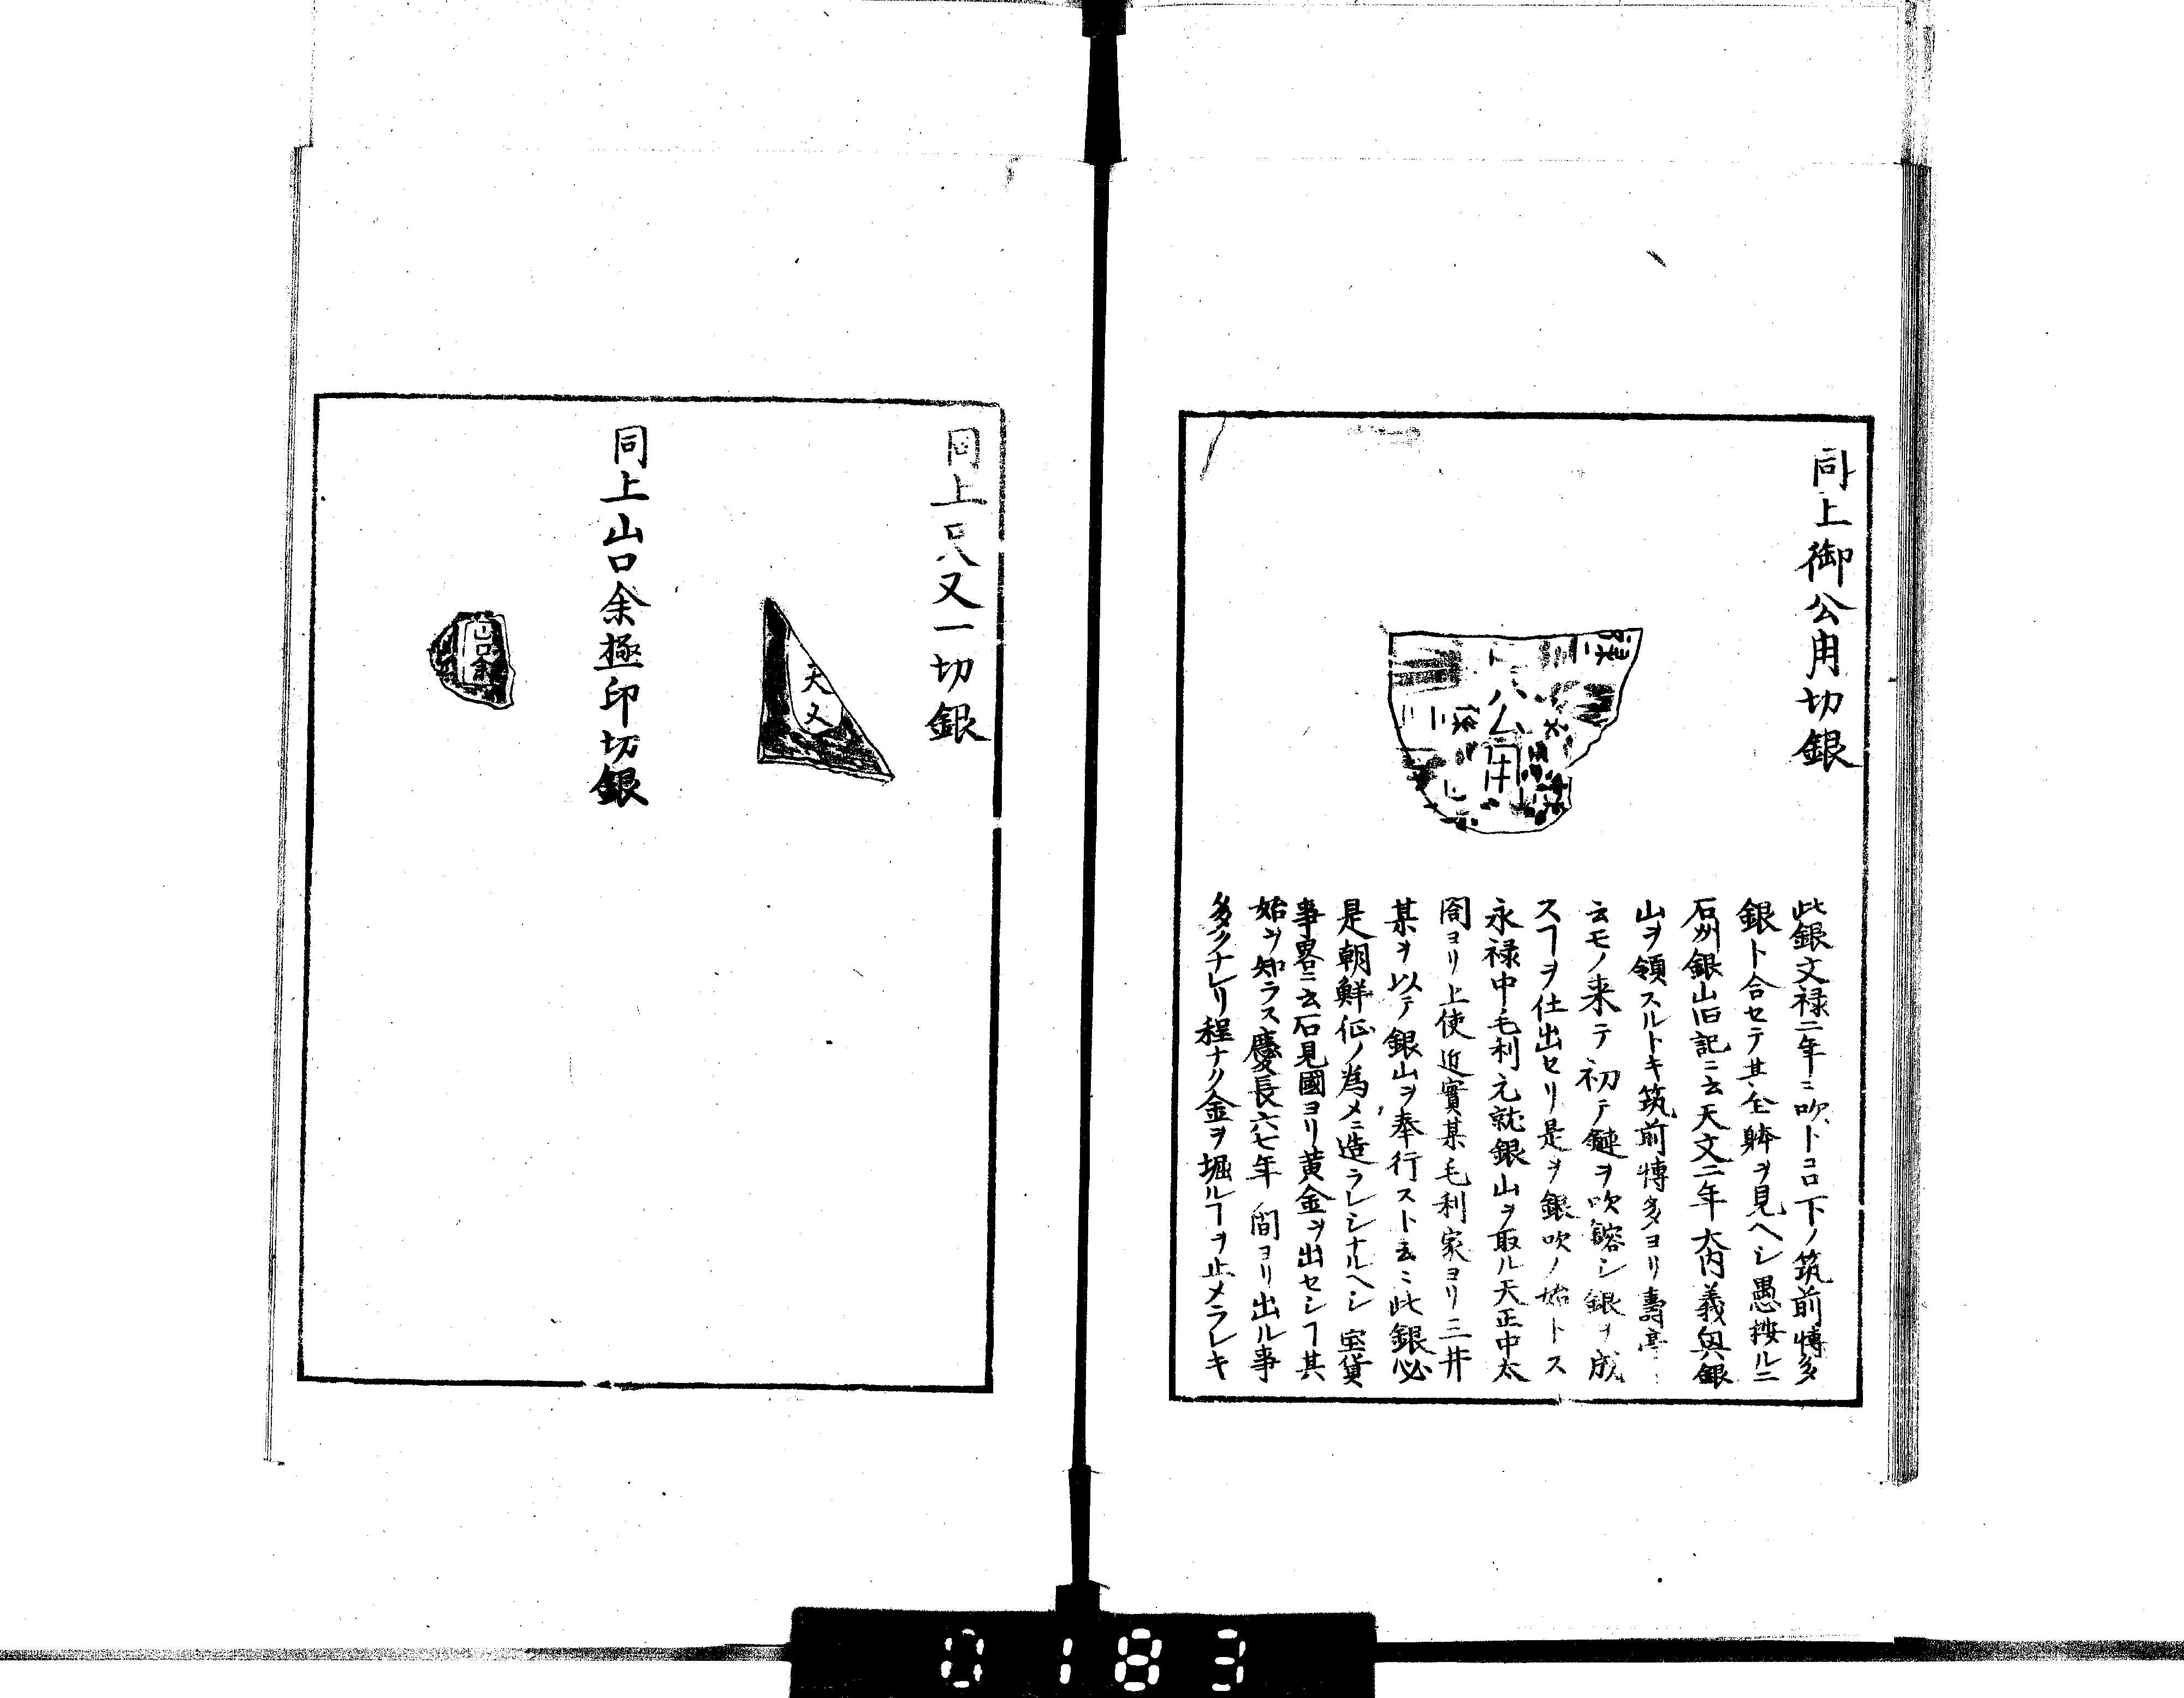 同上御公用切銀
公用
此銀文禄二年ニ吹トコロ下ノ筑前博多
銀ト合セテ其全躰ヲ見ヘシ愚按ルニ
石州銀山旧記ニ云天文二年大内義興銀
山ヲ領スルトキ筑前博多ヨリ壽亭
云モノ来テ初テ鏈ヲ吹鎔シ銀ヲ成
スヿヲ仕出セリ是ヲ銀吹ノ始トス
永禄中毛利元就銀山ヲ取ル天正中太
閤ヨリ上使近實某毛利家ヨリ三井
某ヲ以テ銀山ヲ奉行スト云ニ此銀必
是朝鮮征ノ為メニ造ラレシナルヘシ宝貨
事畧ニ云石見國ヨリ黄金ヲ出セシヿ其
始ヲ知ラス慶長六七年間ヨリ出ル事
多クナレリ程ナク金ヲ堀ルヿヲ止メラレキ
同上尺又一切銀
又
同上山口余極印切銀
山口余
0183